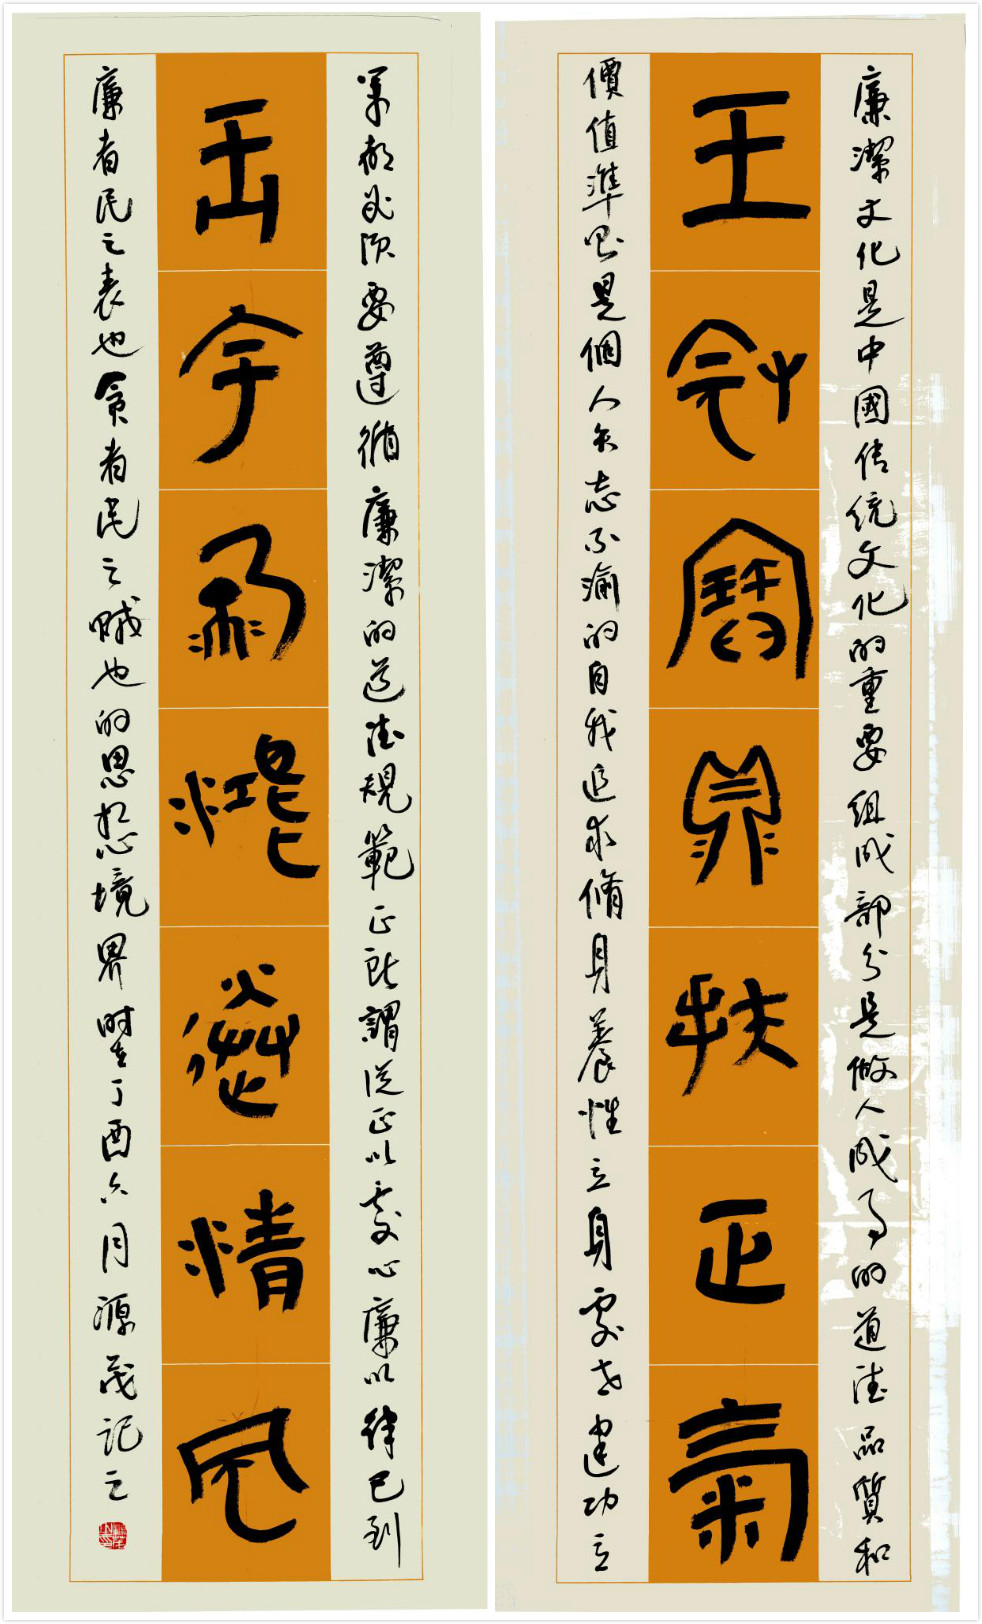 廉潔文化是中國传统文化的重要组成部分是做人成事的道德品質和
王寶鼎扶正氣
價值準则是個人矢志不渝的自我追求修身養性立身處世建功立
業都必须要遵循廉潔的道德規範正所謂從正以處心廉以律己到
宇清風
廉者民之表也貪者民之賊也的思想境界時在丁酉六月源茂記之